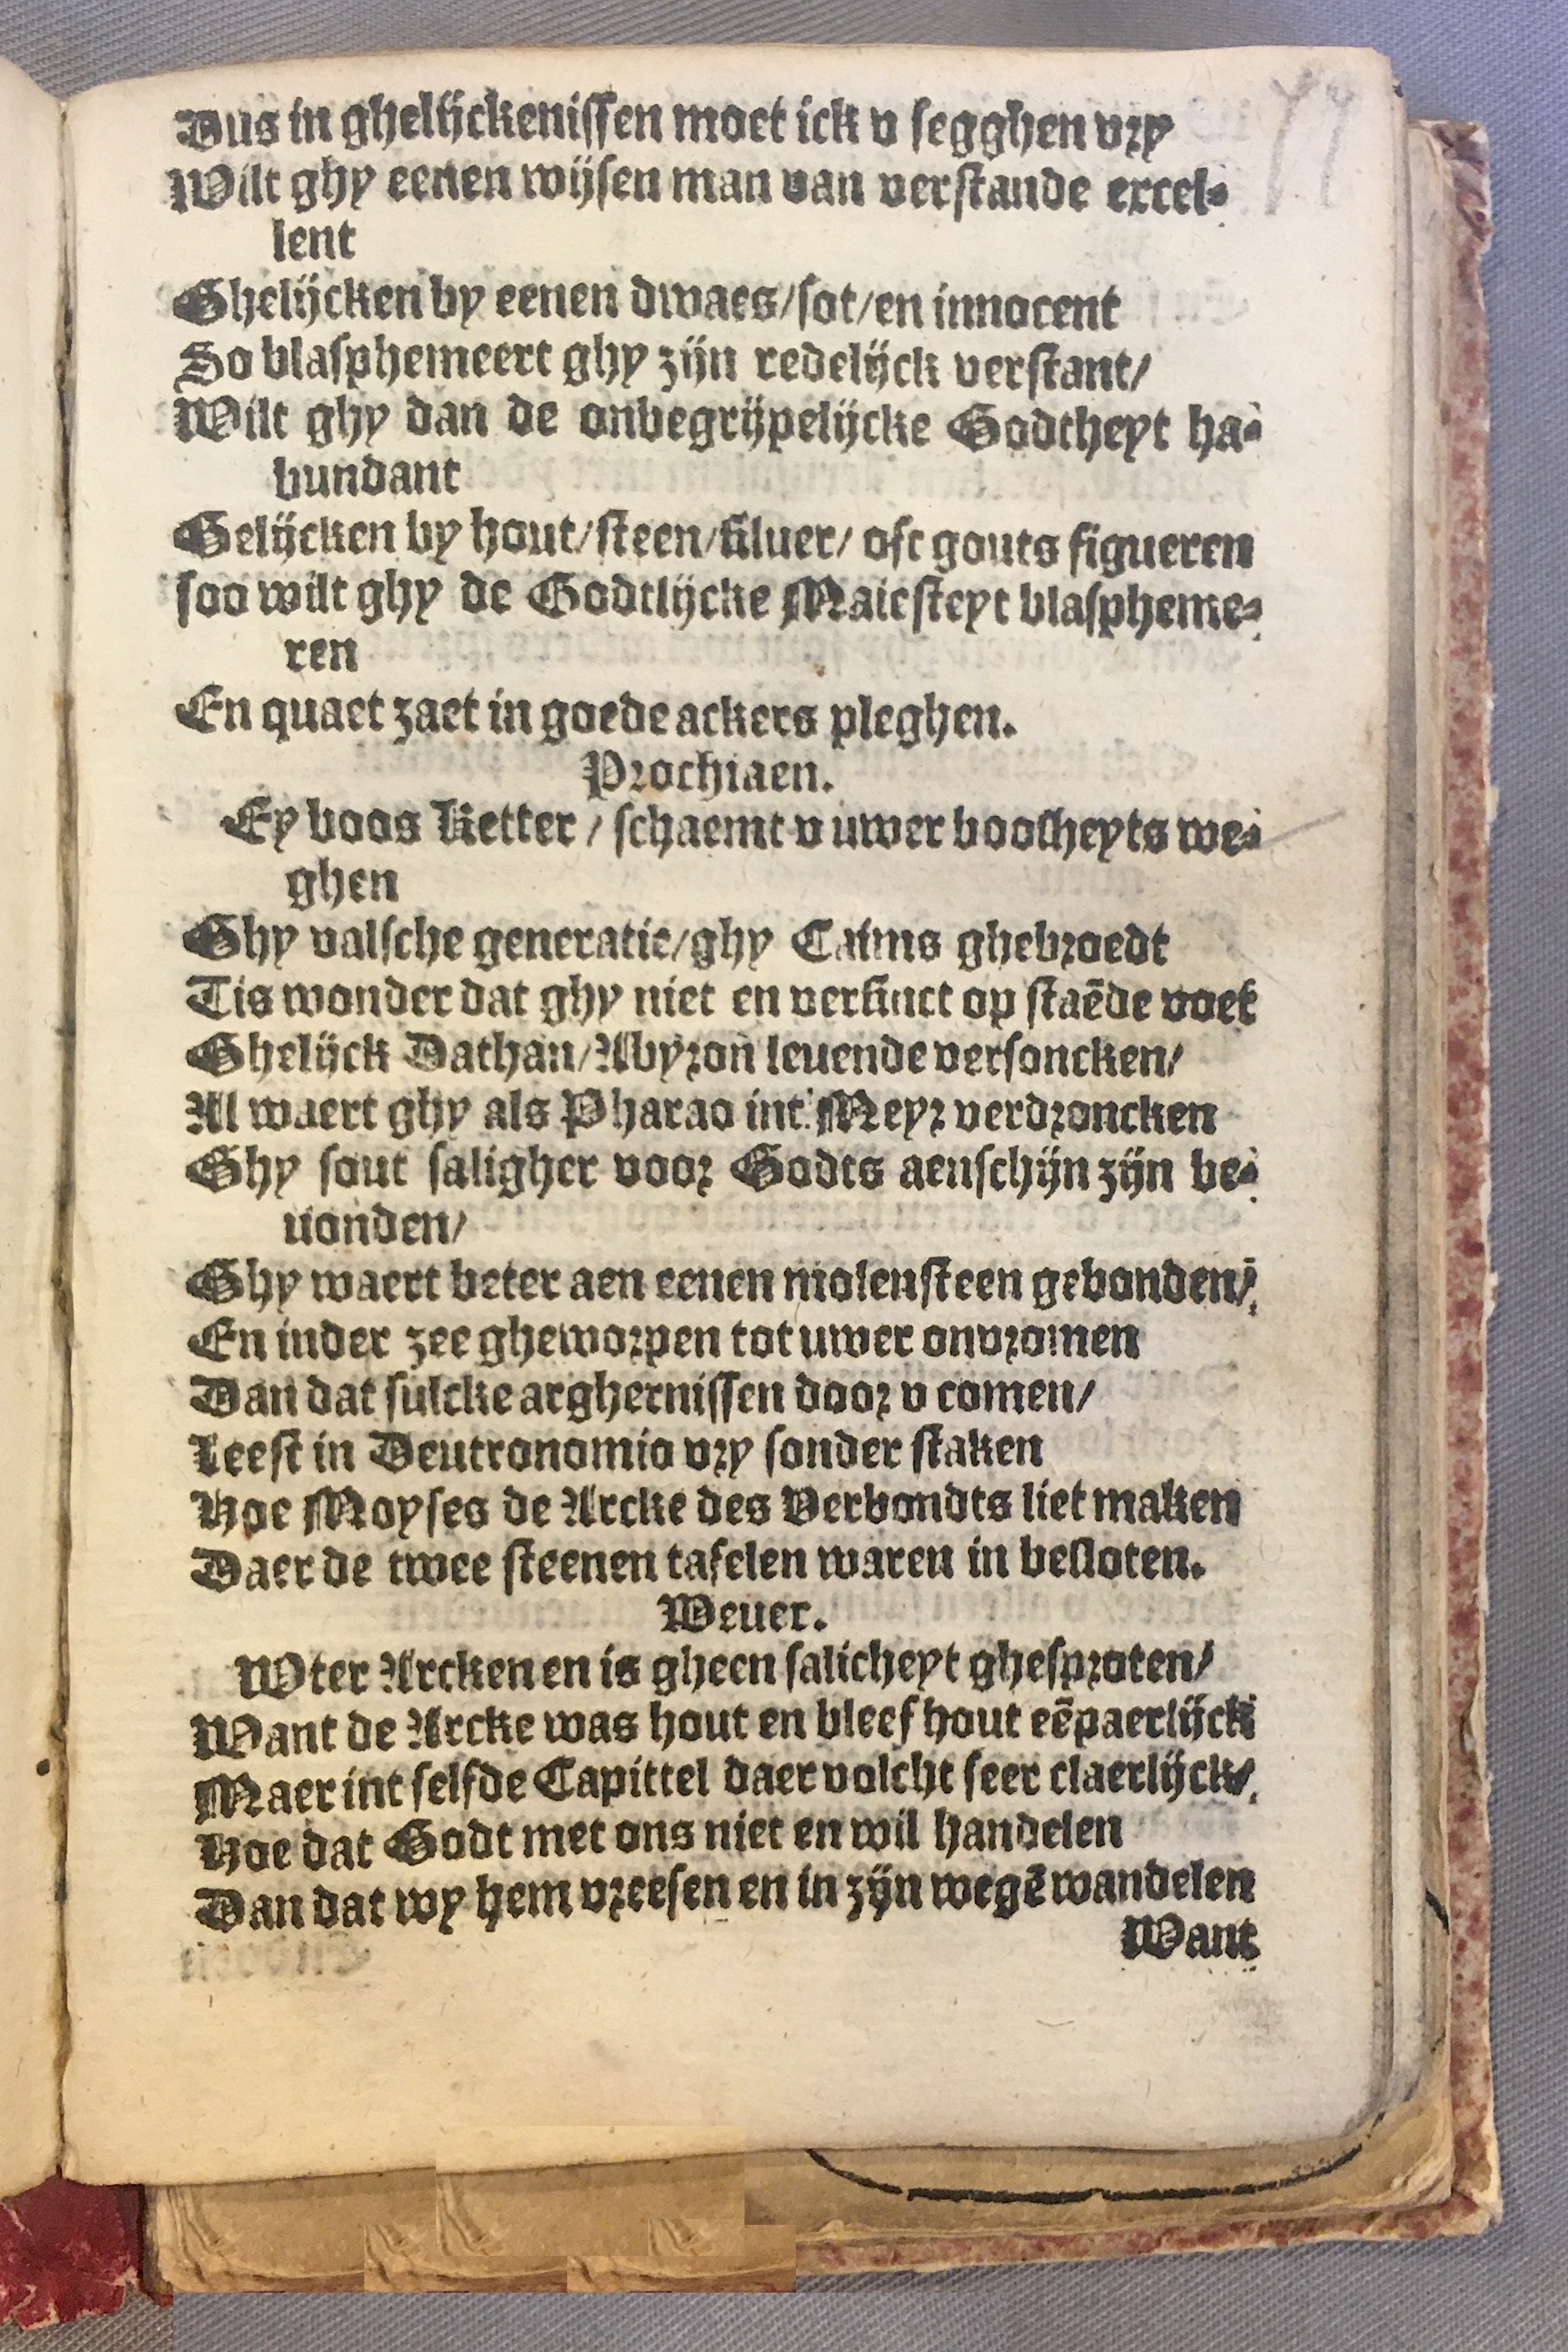 Dus in ghelijckenissen moet ick v segghen vry
Wilt ghy eenen wijsen man van verstande excel-
lent
Ghelijcken by eenen dwaes/sot/en innocent
So blasphemeert ghy zijn redelijck verstant/
Wilt ghy dan de onbegrijpelijcke Godtheyt ha-
bundant
Gelijcken by hout/steen/siluer/ oft gouts figueren
soo wilt ghy de Godtlijcke Maiesteyt blaspheme-
ren
En quaet zaet in goede ackers pleghen.
Prochiaen.
Ey boos Ketter / schaemt v uwer boosheyts we-
ghen
Ghy valsche generatie/ghy Caims ghebroedt
Tis wonder dat ghy niet en versinct op staēde voet
Ghelijck Dathan/Abyron leuende versoncken/
Al waert ghy als Pharao int Meyr verdroncken
Ghy sout saligher voor Godts aenschijn zijn be-
uonden/
Ghy waert beter aen eenen molensteen gebonden/
En inder zee gheworpen tot uwer onvromen
Dan dat sulcke arghernissen door v comen/
Leest in Deutronomio vry sonder staken
Hoe Moyses de Arcke des Verbondts liet maken
Daer de twee steenen tafelen waren in besloten.
Weuer.
Wter Arcken en is gheen salicheyt ghesproten/
Want de Arcke was hout en bleef hout eēpaerlijck
Maer int selfde Capittel daer volcht seer claerlijck/
Hoe dat Godt met ons niet en wil handelen
Dan dat wy hem vreesen en in zijn wegē wandelen
Want